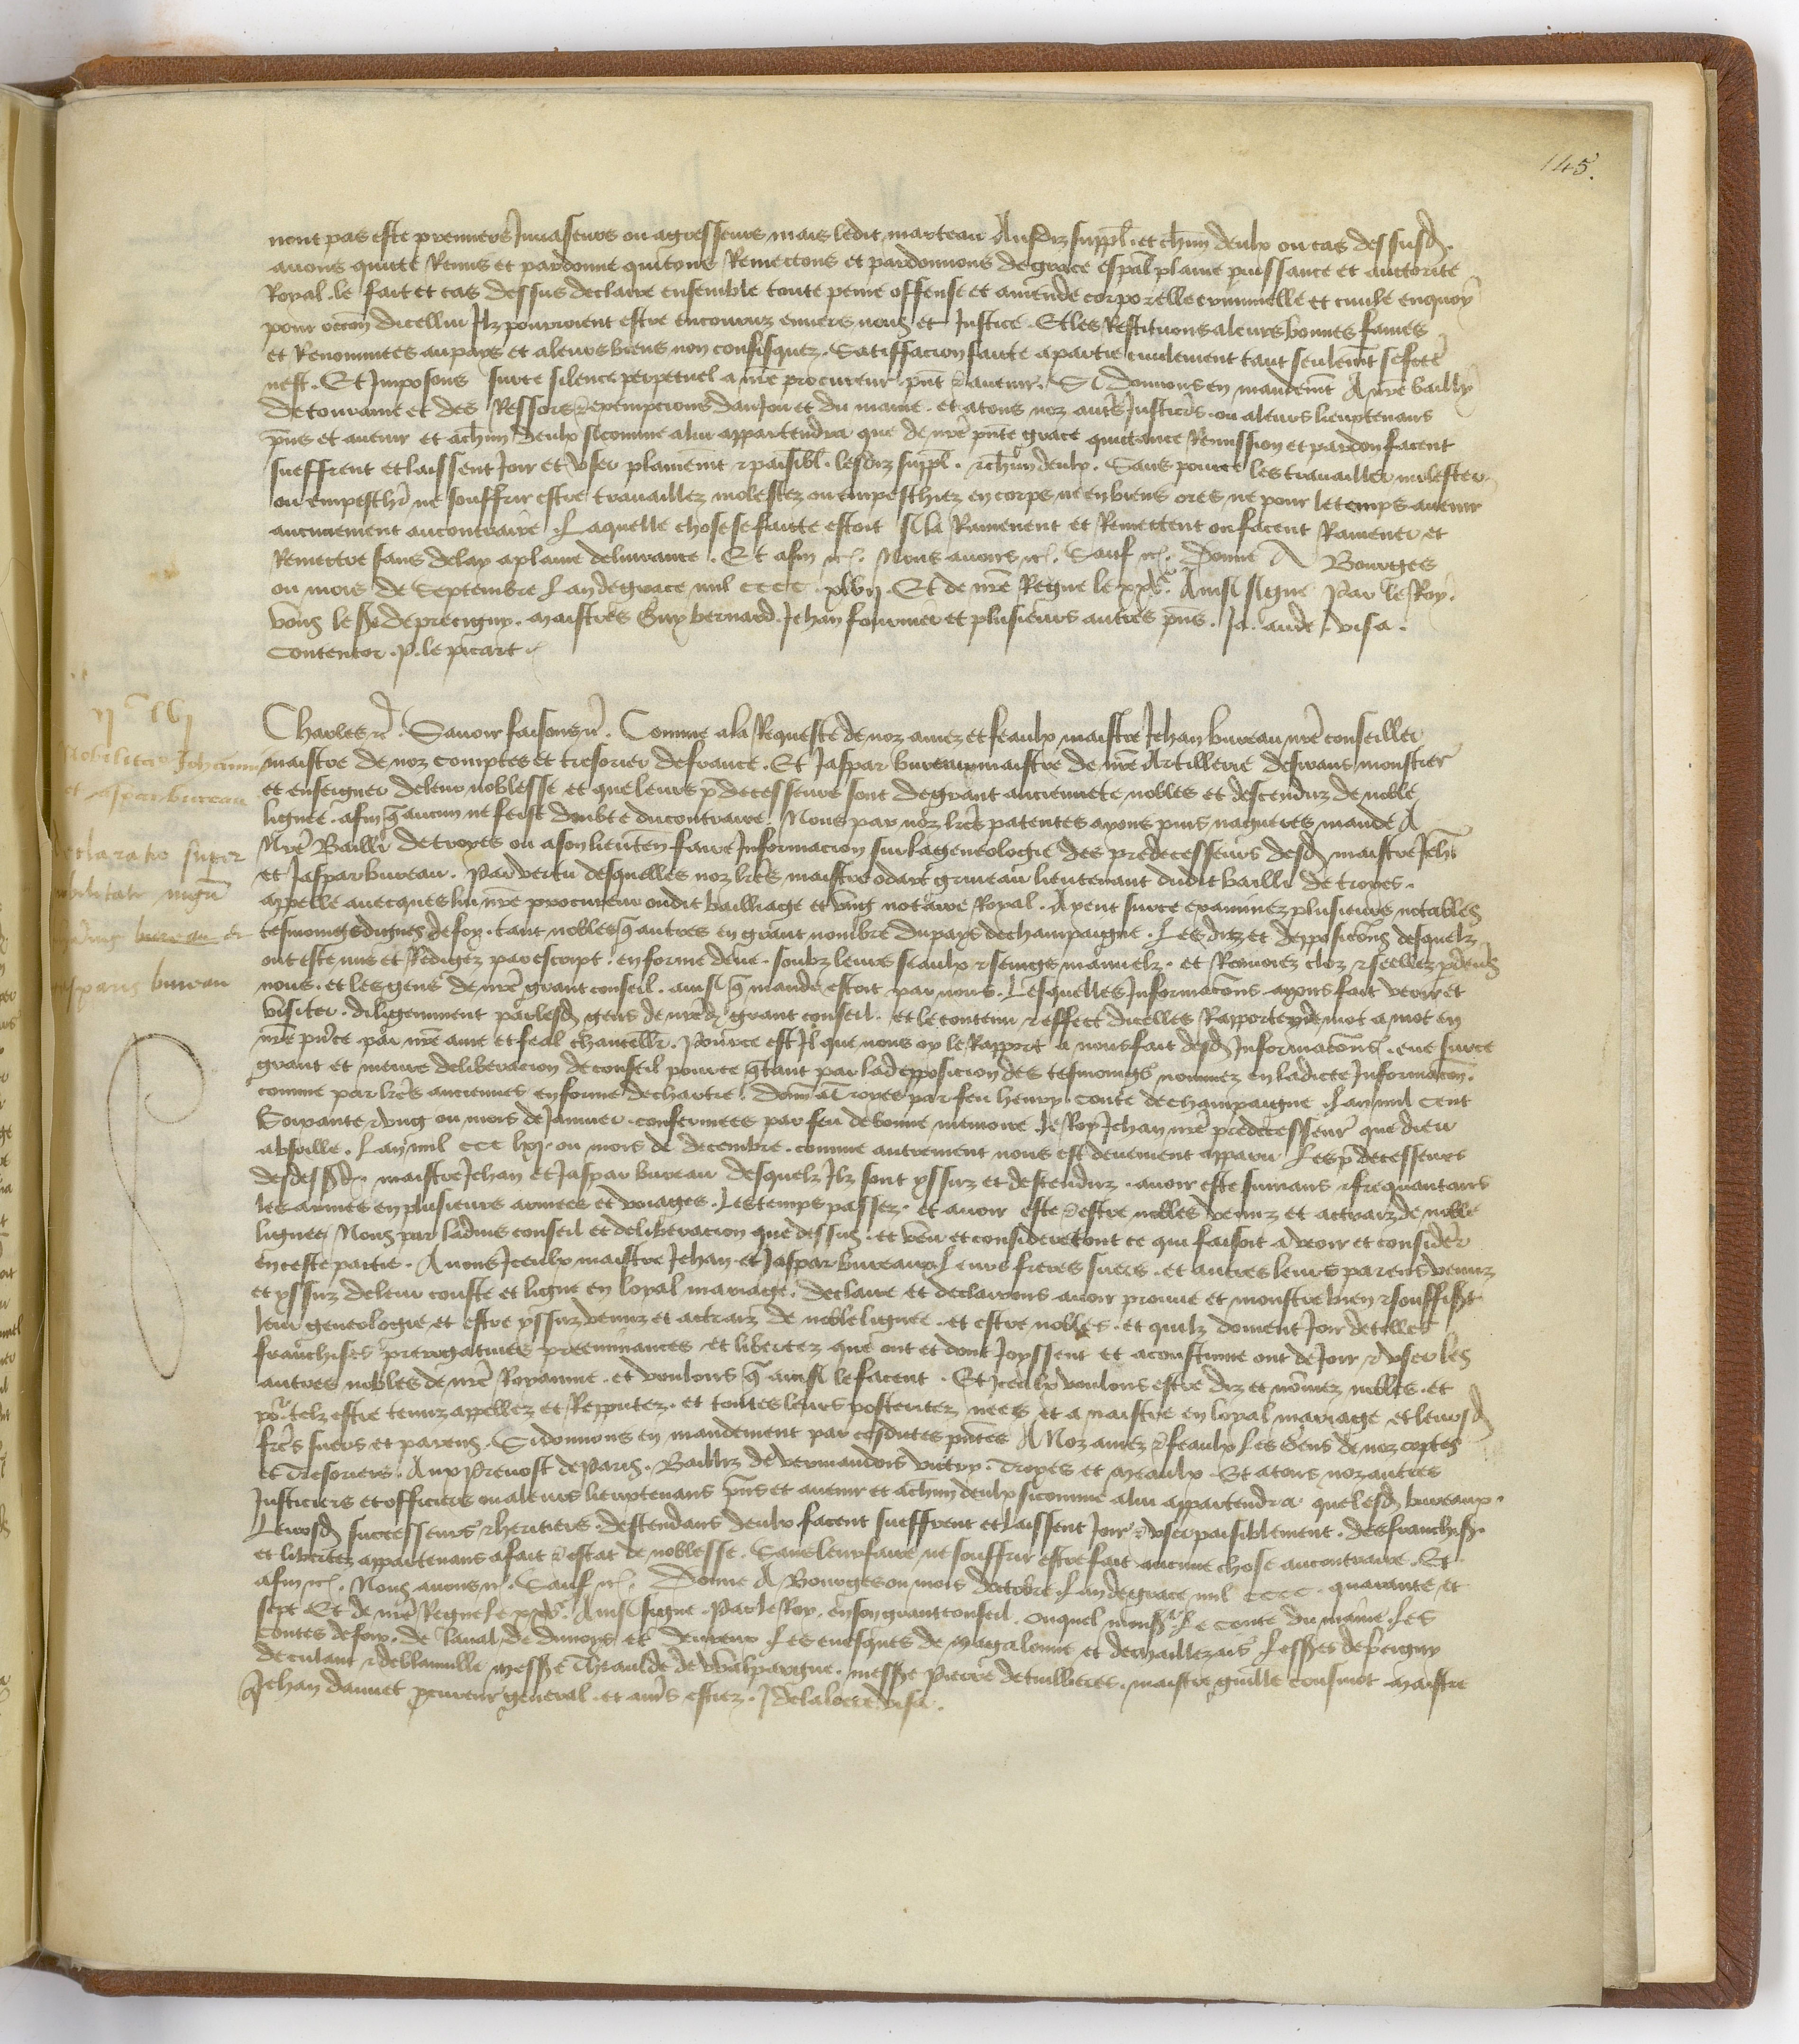 145.
nont pas este premiers Invaseurs ou agresseurs mais ledit marteau Ausdiz suppl. et chũn deulx ou cas dessusd.
avons quicte Remis et pardonne quictons Remectons et pardonnons de grace espãl plaine puissance et auctorite
Royal. le fait et cas dessus declaire ensemble toute peine offense et amende corporelle criminelle et civile enquoy
pour occõn dicellui Ilz pourroient estre encouruz envers nous et Justice. Et les Restituons a leurs bonnes fames
et Renommees au pays et a leurs biens non confisquez. Satisfacion faicte a partie civilement tant seulemẽt se fcte
nest. Et Imposons surce silence perpetuel a nrẽ procureur pñt & avenir. Si donnons en mandemẽt A nrẽ bailly
de touraine et des Ressors & exempcions danJou et du maine. et a tous noz autrẽs Justiciẽs. ou a leurs lieuxtenans
pñs et avenir et a chũn deulx sicomme a lui appartendra que de nrẽ pñte grace quictance Remission et pardon facent
sueffrent et laissent Joir et user plainemẽt & paisibl. lesdiz suppl. & chũn deulx. Sans pource les travailler molester
ou empeschẽr ne souffrir estre travaillez molestez ou empeschiez en corps ne en biens ores ne pour le temps avenir
aucunement aucontraire. Laquelle chose se faicte estoit si la Ramenent et Remettent ou facent Ramener et
Remectre sans delay a plaine delivrance. Et afin &c. Nous avons &c. Sauf &c. Donne A Bourges
ou mois de Septembre Lan de grace mil cccc xlvij. Et de nrẽ Regne le xxvᵉ. Ainsi signe Par le Roy.
vous le sire de precigny. maistres Guy bernard. Jehan fournier et plusieurs autres pñs. Ja. aude. visa.
Contentor. P. le picart.
Charles &c. Savoir faisons &c. Comme a la Requeste de noz amez et feaulx maistre Jehan bureau nrẽ conseiller
maistre de noz comptes et tresorier de france. Et Jaspar bureau maistre de nrẽ Artillerie desirans monstrer
et enseigner de leur noblesse et que leurs p̃decesseurs sont de grant anciennete nobles et descenduz de noble
lignee. afin q̃ aucun ne feist doubte ou contraire. Nous par noz lrẽs patentes ayons puis nagueres mande A
Nrẽ Bailli de troyes ou a son lieutẽn faire Informacion sur la geneologie des predecesseurs desd. maistre Jehã
et Jaspar bureau. Par vertu desquelles noz lrẽs maistre odart griveau lieutenant dudit bailli de troyes.
appelle avecques lui nrẽ procureur oudit bailliage et ung notaire Royal. Ayent surce examinez plusieurs notables
tesmoings dignes de foy. tant nobles q̃ autres en grant nombre du pays de champaigne. Les diz et depposicõns desquelz
ont este mis et Redigez par escript. en forme deue. soubz leurs seaulx & seings manuelz. et Renvoiez cloz & seellez p̃ devs
nous. et les gens de nrẽ grant conseil. ainsi q̃ mande estoit par nous. Lesquelles Informacõns ayons fait veoir et
visiter. diligemment par lesd. gens de nrẽd. grant conseil. et le contenu & effect dicelles Rapporter de mot a mot en
nrẽ pñce par nrẽ ame et feal chancellr̃. Pource est Il que nous oy le Rapport a nous fait desd. Informacõns. eue surce
grant et meure deliberacion de conseil pource q̃ tant par la depposicion des tesmoings nommez en ladicte Informacõn.
comme par lrẽs anciennes en forme de chartre. Donñ a Troyes par feu henry conte de champaigne Lan mil cent
Soixante & ung ou mois de Janvier. confermees par feu de bonne memoire le Roy Jehan nrẽ predecesseur que dieu
absoille. Lan mil ccc lxj. ou mois de decembre. comme autrement nous est deuement apparu Les p̃decesseurs
desdessusd. maistre Jehan et Jaspar bureau desquelz Ilz sont yssuz et descenduz. avoir este suivans & frequantans
les armes en plusieurs armees et voiages. Les temps passez. et avoir este & estre nobles venuz et actraiz de noble
lignee. Nous par ladvis conseil et deliberacion que dessus. et veu et considere tout ce qui faisoit a veoir et considerẽr
en ceste partie. Avons Iceulx maistre Jehan et Jaspar bureaux Leurs freres suers. et autres leurs parens venuz
et yssuz de leur coste et ligne en loyal mariage. declaire et declairons avoir prouve et monstre bien & souffismt
leur geneologie et estre yssuz venuz et actraiz de noble lignee. et estre nobles. et quilz doivent Joir de telles
franchises prerogatives preeminances et libertez que ont et dont Joyssent et acoustume ont de Joir & user les
autres nobles de nrẽ Royaume. et voulons q̃ ainsi le facent. Et Iceulx voulons estre diz et nõmez nobles. et
poʳ telz estre tenuz appellez et Repputez. et toutes leurs posteritez nees et a naistre en loyal mariage et leursd.
frẽs suers et parens. Si donnons en mandement par cesdictes pñtes A Noz amez & feaulx Les Gens de noz cõptes
et Tresoriers. Aux Prevost de Paris. Bailliz de vermandois vitry. Troyes et meaulx. Et a tous noz autres
Justiciers et officiers ou a leurs lieuxtenans pñs et avenir et a chũn deulx sicomme a lui appartendra que lesd. bureaux.
Leursd. successeurs & heritiers descendans deulx facent sueffrent et laissent Joir & user paisiblement. des franchises
et libertez appartenans a fait & estat de noblesse. Sans leur faire ne souffrir estre fait aucune chose aucontraire. Et
afin &c. Nous avons &c. Sauf &c. Donne A Bourges ou mois doctobre. Lan de grace mil cccc. quarante et
sept. Et de nrẽ Regne le xxvᵉ. Ainsi signe. Par le Roy. en son grant conseil. ouquel monsʳ. Le conte du maine. Les
Contes de foix. de laval de dunoys et Les evesques de magalonne et de maillezais Les sires de p̃cigny
de culant & de blainville messire Theaulde de valpargue. messire Pierre de tuillieres. maistre guillẽ cousinot maistre
Jehan dauvet p̃cureur general. et autrẽs estiez. J. delaloere. visa.
Nobilitacio Johannis
et Jaspar bureau
declaratio super
nobilitate mgrĩ
Johannis bureau et
Gasparis bureau